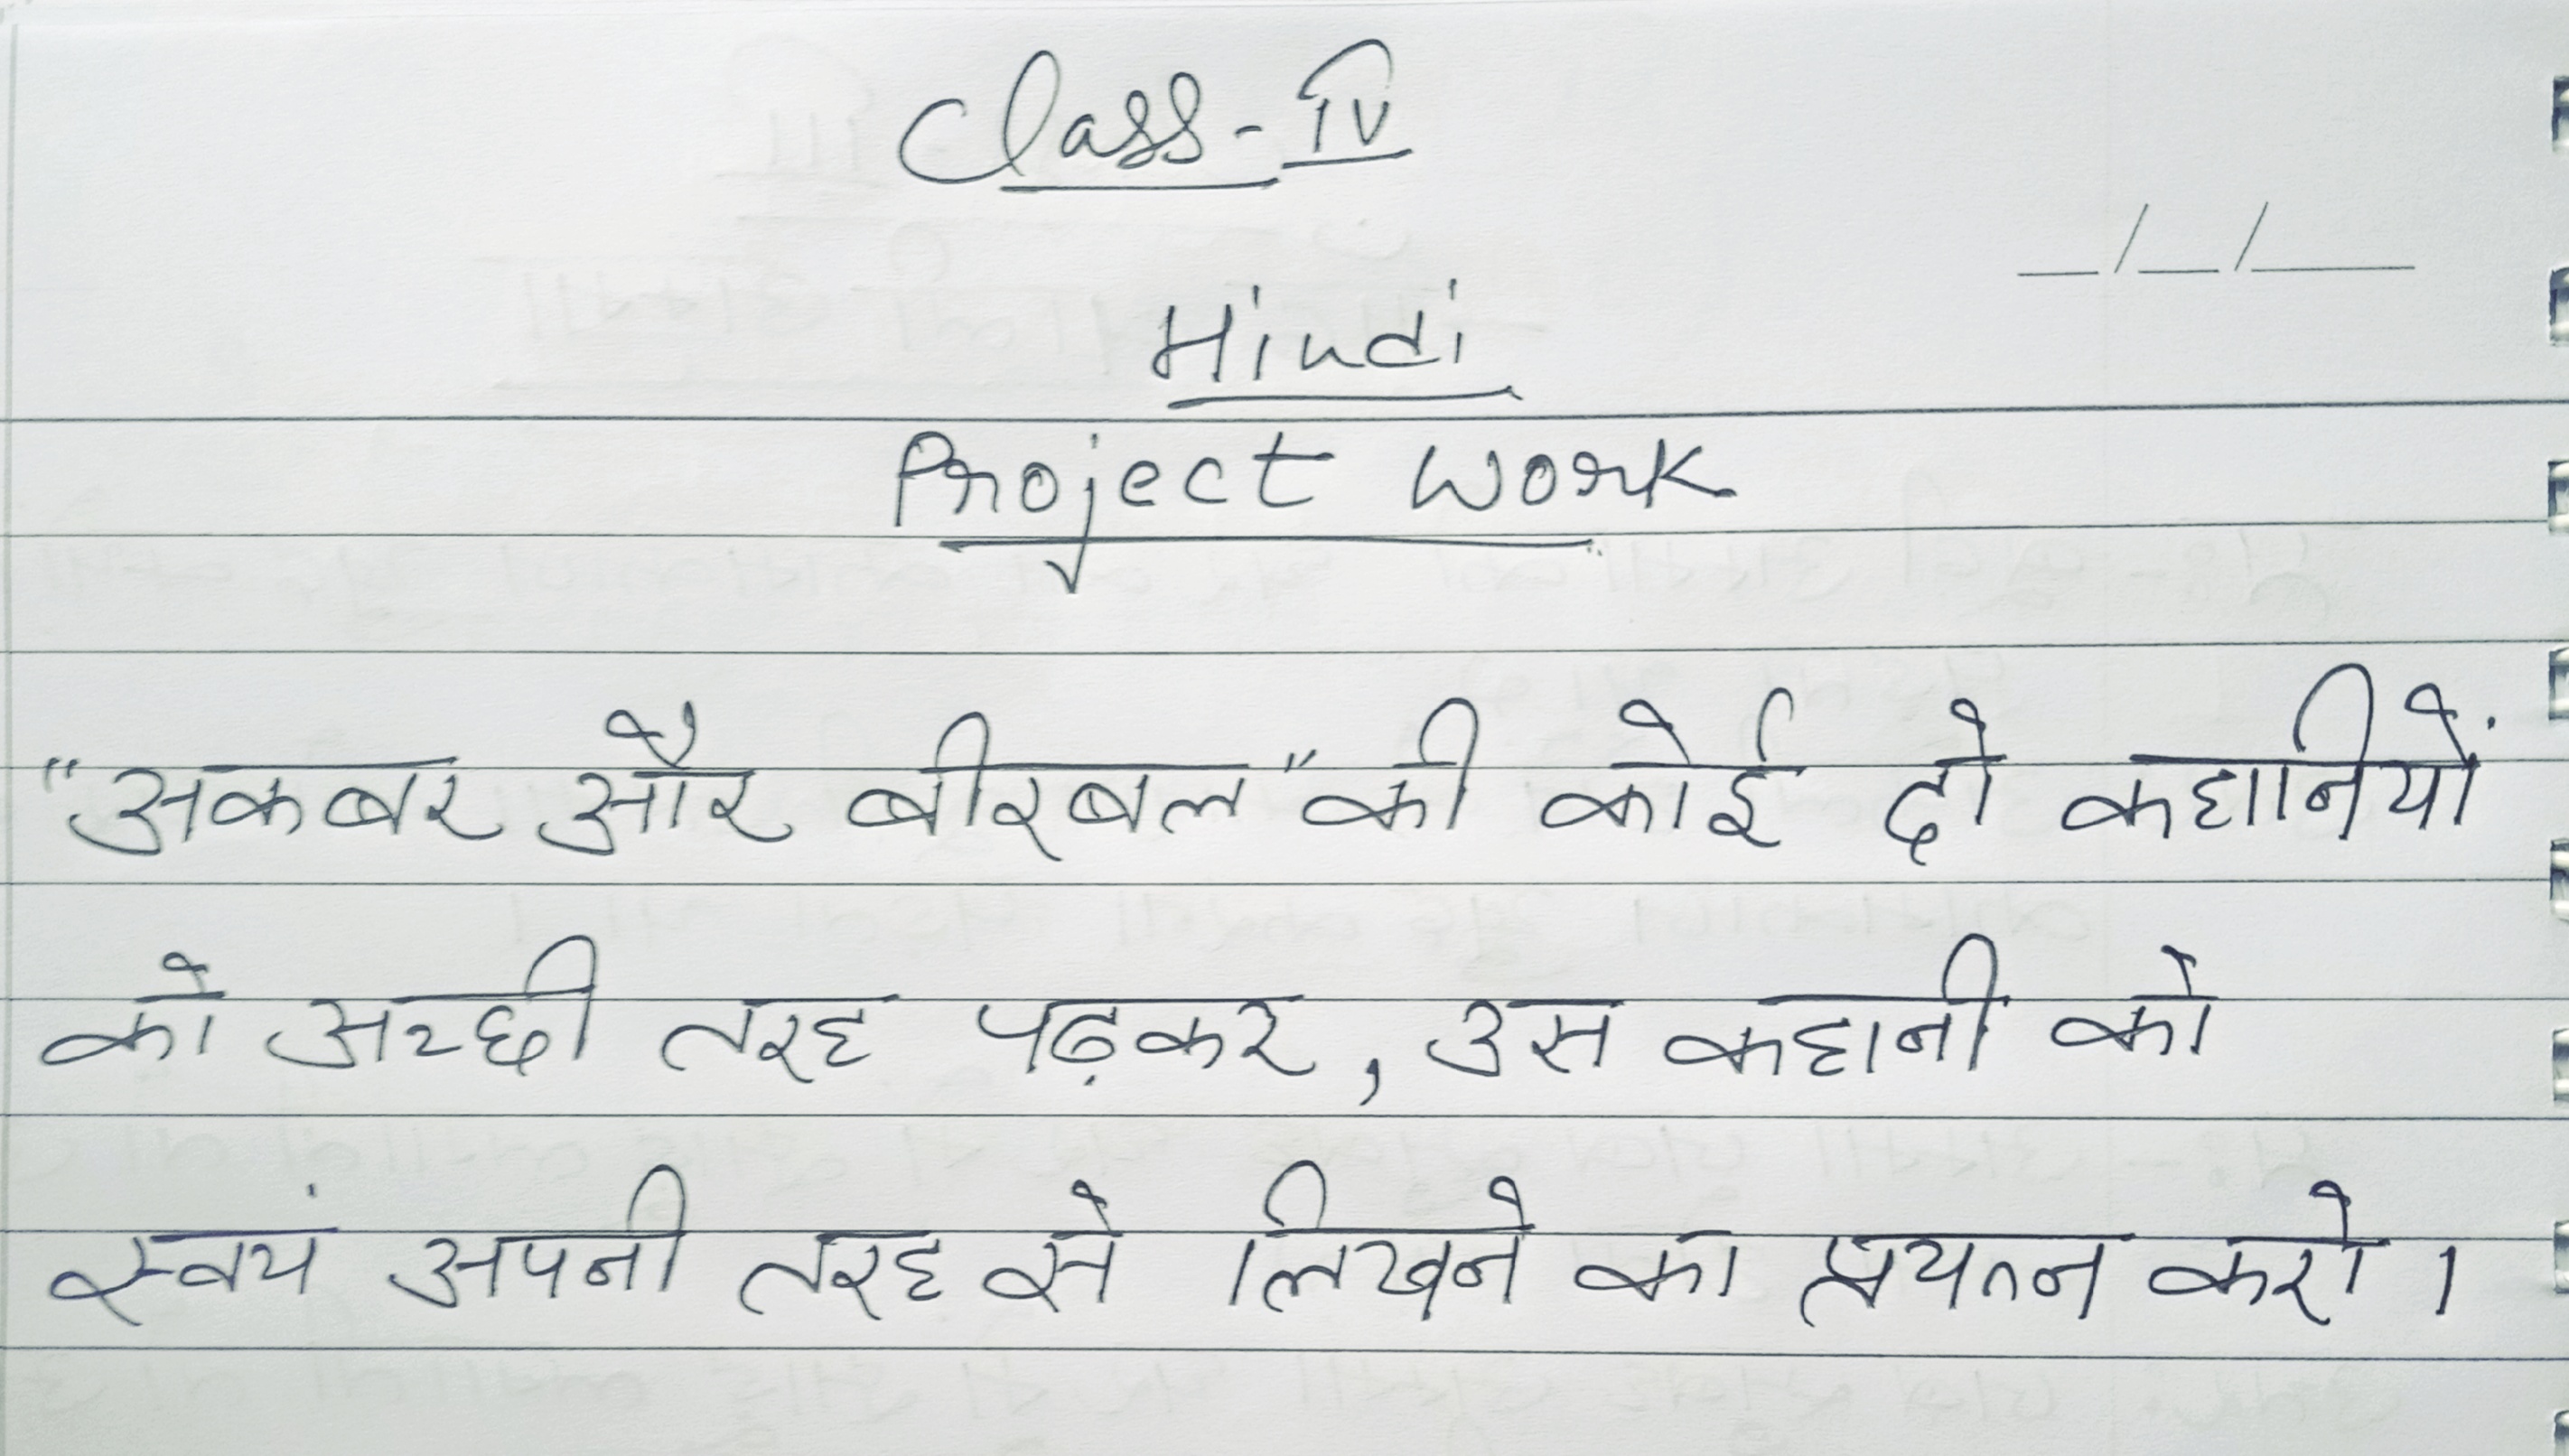 Class-IV
__/__/____
Hindi
Project Work
"अकबर और बीरबल" की कोई दो कहानियों
को अच्छी तरह पढ़कर, उस कहानी को
स्वयं अपनी तरह से लिखने का प्रयत्न करो।